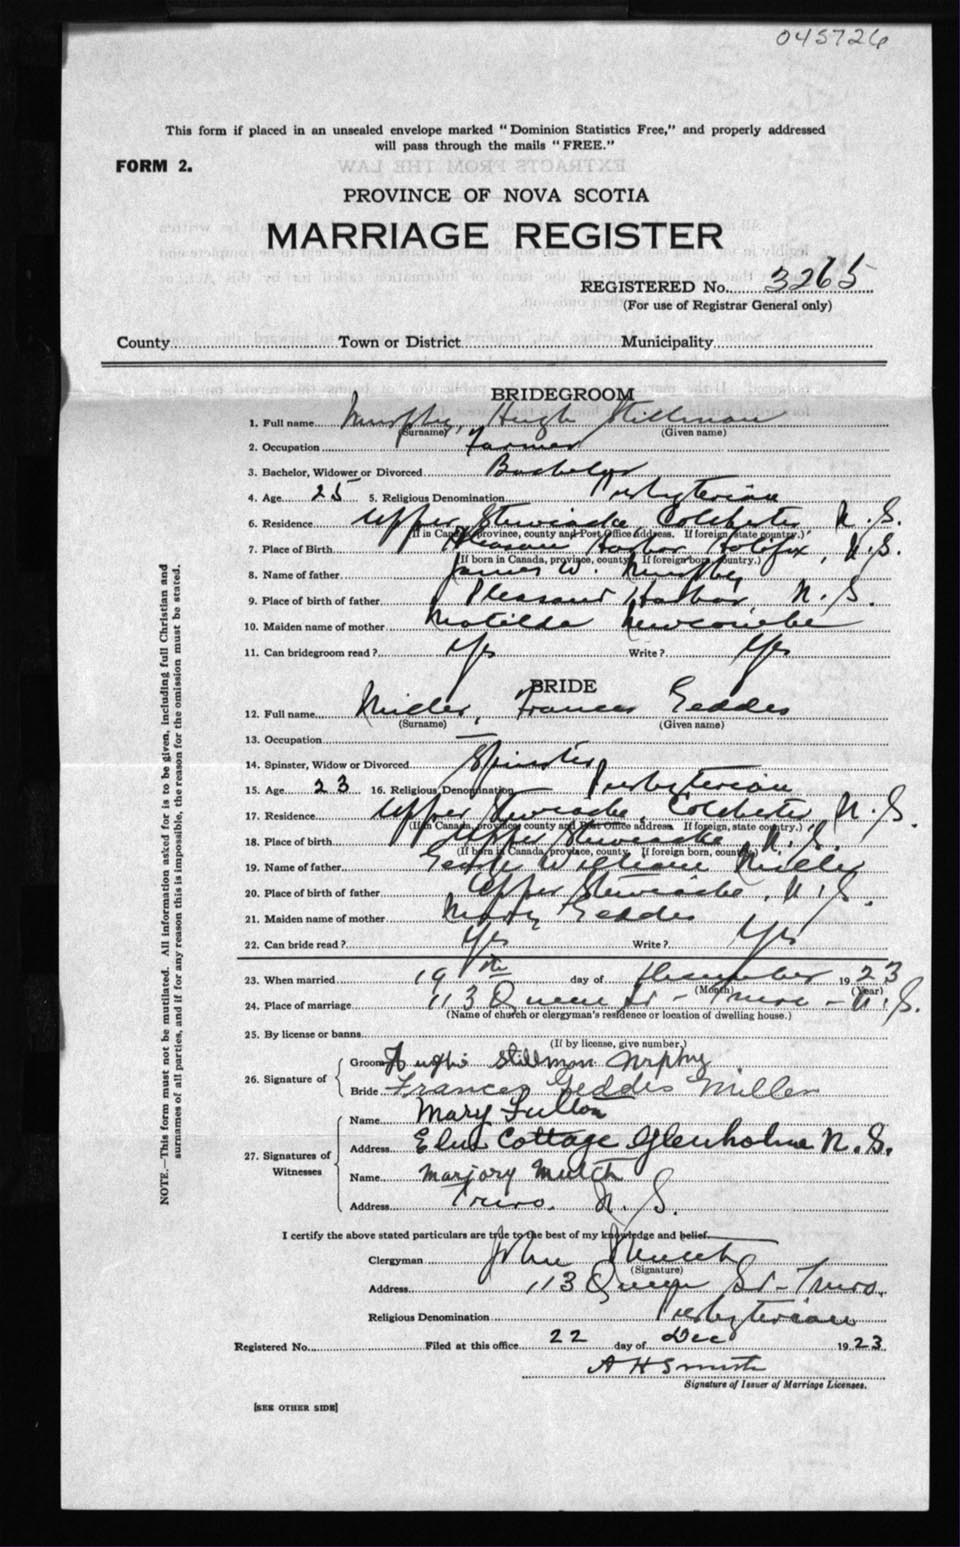 045726
This form if placed in an unsealed envelope marked "Dominion Statistics Free," and properly addressed
will pass through the mails "FREE."
EXTRACTS FROM THE LAW
FORM 2.
PROVINCE OF NOVA SCOTIA
MARRIAGE REGISTER
REGISTERED No. 3265
(For use of Registrar General only)
County Town or District Municipality
BRIDEGROOM
1. Full name Murphy, Hugh Stillman
(Surname) (Given name)
2. Occupation Farmer
3. Bachelor, Widower or Divorced Bachelor
4. Age 25 5. Religious Denomination Presbyterian
6. Residence Upper Stewiacke, Colchester N.S.
(If in Canada, province, county and Post Office address. If foreign, state country.)
7. Place of Birth Pleasant Harbor Halifax, N.S.
(If born in Canada, province, county. If foreign born, country.)
8. Name of father James W. Murphy
9. Place of birth of father Pleasant Harbor, N.S.
10. Maiden name of mother Matilda Newcombe
11. Can bridegroom read? Yes Write? Yes
BRIDE
12. Full name Miller, Frances Geddes
(Surname) (Given name)
13. Occupation —
14. Spinster, Widow or Divorced Spinster
15. Age 23 16. Religious Denomination Presbyterian
17. Residence Upper Stewiacke, Colchester N.S.
(If in Canada, province, county and Post Office address. If foreign, state country.)
18. Place of birth Upper Stewiacke, N.S.
(If born in Canada, province, county. If foreign born, country.)
19. Name of father George William Miller
20. Place of birth of father Upper Stewiacke, N.S.
21. Maiden name of mother Mary Geddes
22. Can bride read? Yes Write? Yes
23. When married 19th day of December 1923
(Month) (Year)
24. Place of marriage 113 Queen St - Truro - N.S.
(Name of church or clergyman's residence or location of dwelling house.)
25. By license or banns
(If by license, give number.)
26. Signature of
Groom Hugh Stillman Mrphy
Bride Frances Geddes Miller
27. Signatures of Witnesses
Name Mary Fulton
Address Elm Cottage Glenholme N.S.
Name Marjory Mutch
Address Truro, N.S.
I certify the above stated particulars are true to the best of my knowledge and belief.
Clergyman John Mutch
(Signature)
Address 113 Queen St - Truro.
Religious Denomination Presbyterian
Registered No. Filed at this office 22 day of Dec 1923
A H Smith
Signature of Issuer of Marriage Licenses.
[SEE OTHER SIDE]
NOTE.—This form must not be mutilated. All information asked for is to be given, including full Christian and
surnames of all parties, and if for any reason this is impossible, the reason for the omission must be stated.